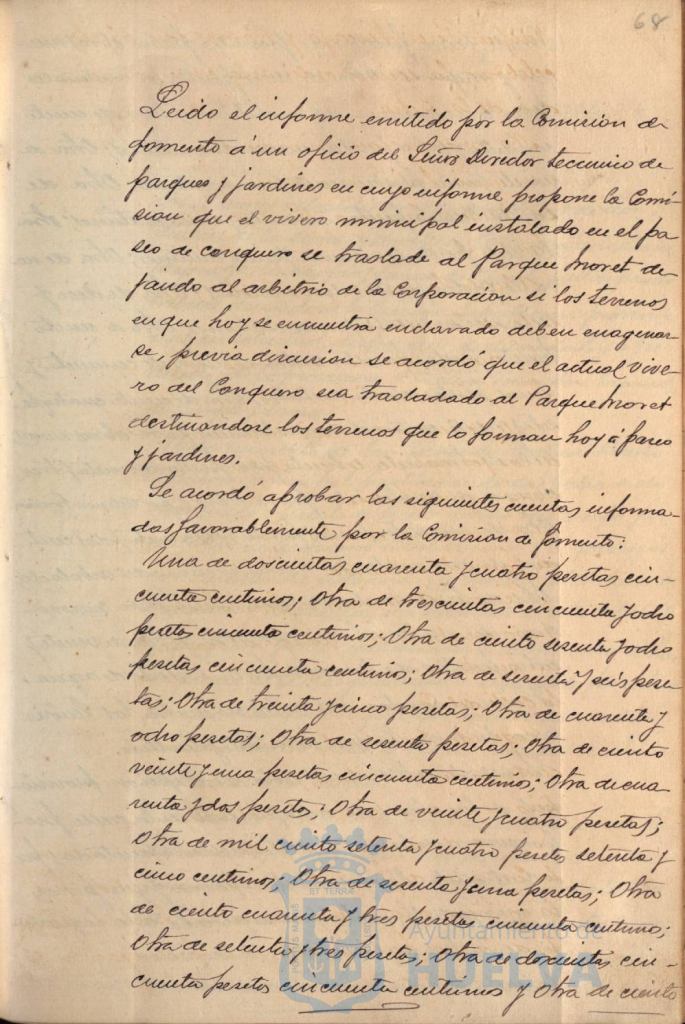 68
Leido el informe emitido por la Comision de
fomento á un oficio del Señor Director tecnico de
parques y jardines en cuyo informe propone la Comi-
sion que el vivero municipal instalado en el pa
seo de conquero se traslade al Parque Moret de
jando al arbitrio de la Corporacion si los terrenos
en que hoy se encuentra enclavado deben enagenar-
se, previa discusion se acordó que el actual vive-
ro del Conquero sea trasladado al Parque Moret
destinandose los terrenos que lo forman hoy á paseo
y jardines.
Se acordó aprobar las siguientes cuentas informa-
das favorablemente por la Comision de fomento:
Una de doscientas cuarenta y cuatro pesetas cin-
cuenta centimos; Otra de trescientas cincuenta y ocho
pesetas cincuenta centimos; Otra de ciento sesenta y ocho
pesetas cincuenta centimos; Otra de sesenta y seis pese-
tas; Otra de treinta y cinco pesetas; Otra de cuarenta y
ocho pesetas; Otra de sesenta pesetas; Otra de ciento
veinte y una pesetas cincuenta centimos; Otra de cua-
renta y dos pesetas; Otra de veinte y cuatro pesetas;
Otra de mil ciento setenta y cuatro pesetas setenta y
cinco centimos; Otra de sesenta y una pesetas; Otra
de ciento cuarenta y tres pesetas cincuenta centimos;
Otra de setenta y tres pesetas; Otra de doscientas cin-
cuenta pesetas cincuenta centimos y Otra de ciento
Ayuntamiento de
HUELVA